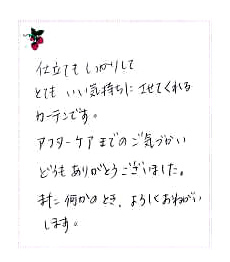 仕立ても しっかりして
とても いい気持ちに させてくれる
カーテンです。
アフターケアまでのご気づかい
どうもありがとうございました。
また何かのとき、よろしくおねがい
します。